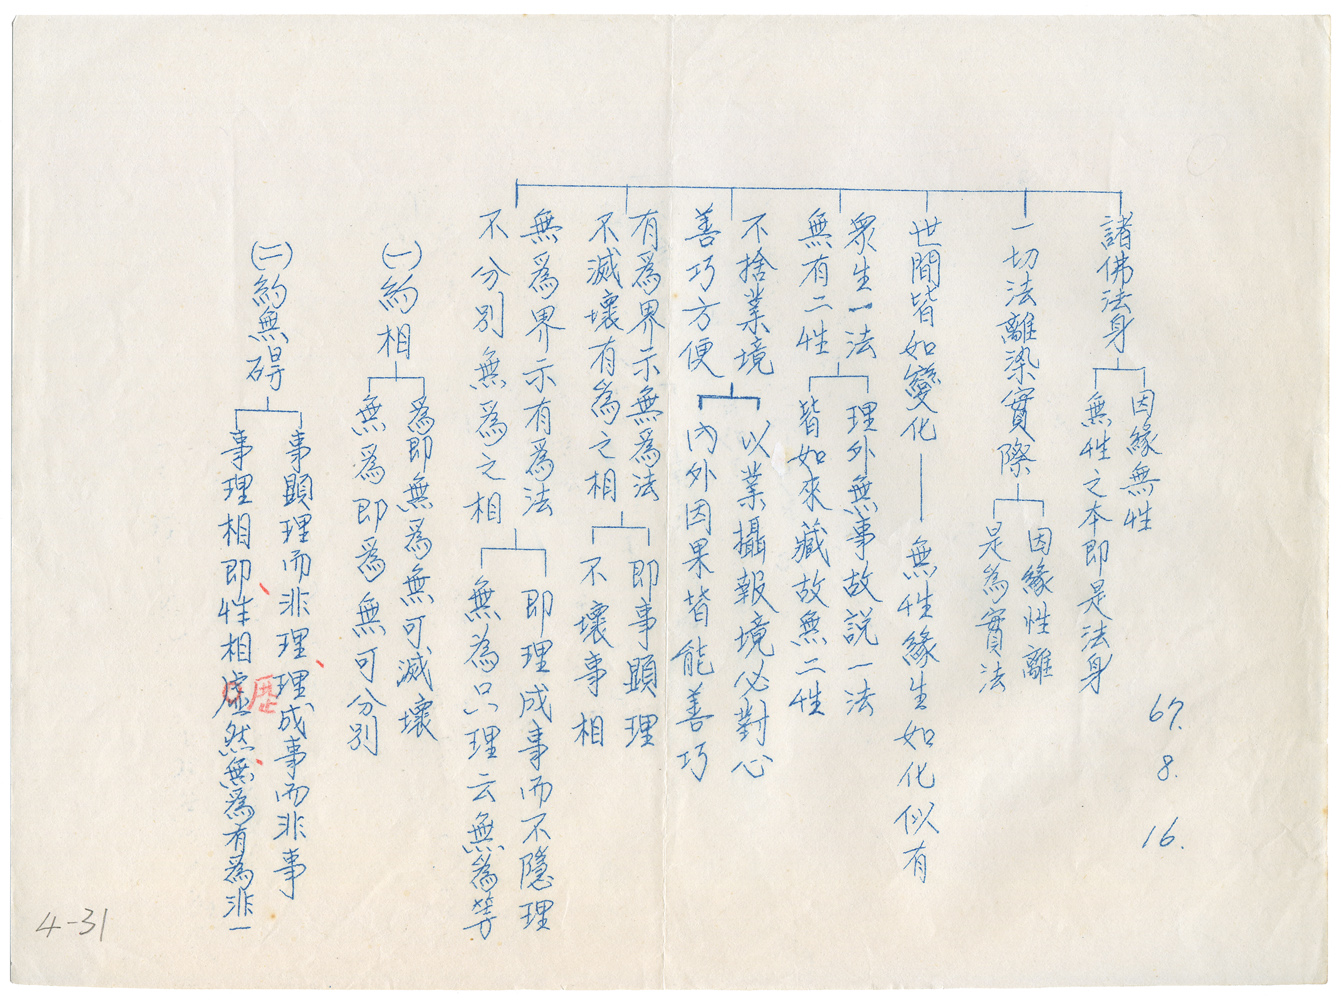 諸佛法身
因緣無性
無性之本即是法身
一切法離染實際
因緣性離
是為實法
世間皆如變化——無性緣生如化似有
眾生一法
無有二性
理外無事故說一法
皆如來藏故無二性
不捨業境
善巧方便
以業攝報境必對心
內外因果皆能善巧
有為界示無為法
不滅壞有為之相
即事顯理
不壞事相
無為界示有為法
不分別無為之相
即理成事而不隱理
無為只理云無為等
㈠約相
為即無為無可滅壞
無為即為無可分別
㈡約無礙
事顯理而非理、理成事而非事
事理相即、性相虛然、無為有為非一
歷
67.
8.
16.
4-31